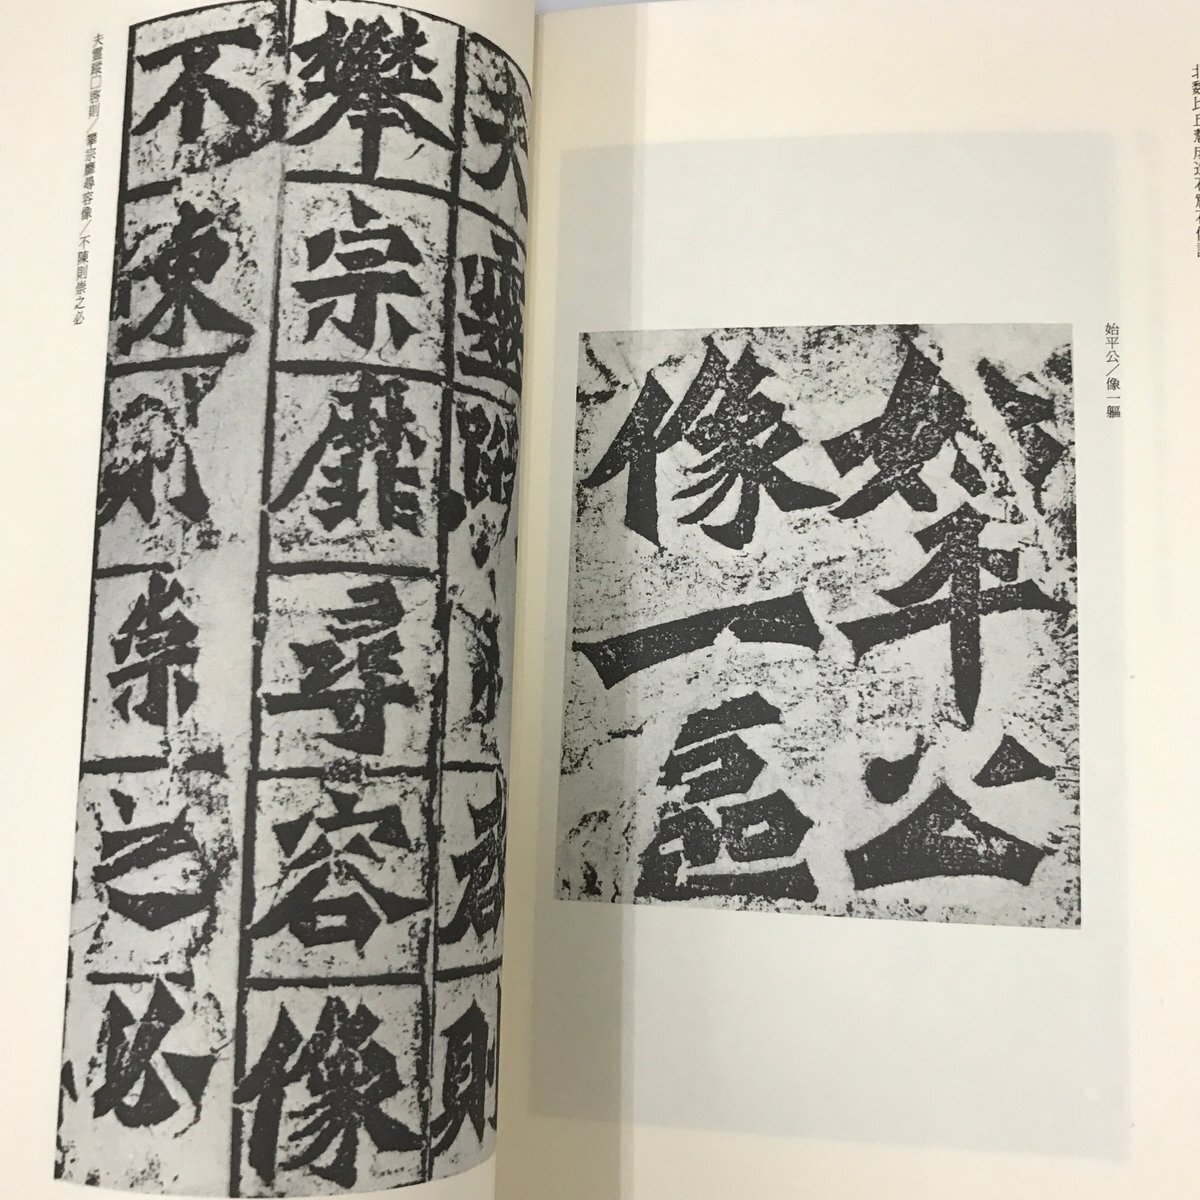 北魏比丘慧成造石窟石像記
始平公／像一軀
始平公
像一區
夫靈蹤啓則
攀宗靡尋容像
不陳則崇之必
夫靈蹤□啓則／攀宗靡尋容像／不陳則崇之必